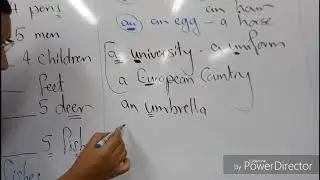 4 pens
5 men
4 children
feet
5 deer
5 fish
fishes
an hair
an an egg - a horse
a university - a uniform
a European Country
an umbrella
By PowerDirector